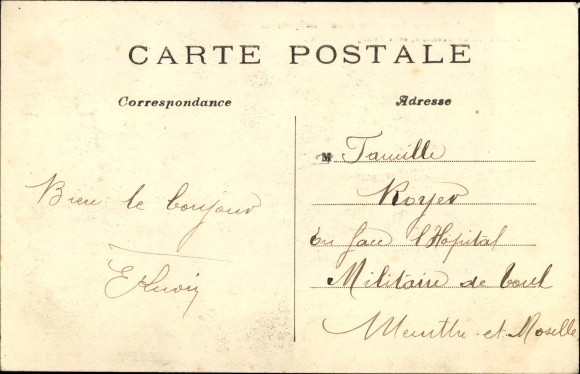 CARTE POSTALE
Correspondance
Adresse
Bien le bonjour
M Famille
Royer
en face l'Hopital
Militaire de Toul
Meurthe et Moselle